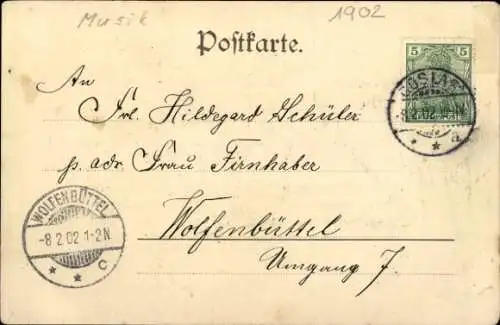 Musik
1902
Postkarte.
5 5
GOSLAR
-8.2.02. 11-12N
* * a
An
Frl. Hildegard Schüler
p. adr. Frau Firnhaber
WOLFENBÜTTEL
-8 2 02 1-2N
* * C
Wolfenbüttel
Umgang 7